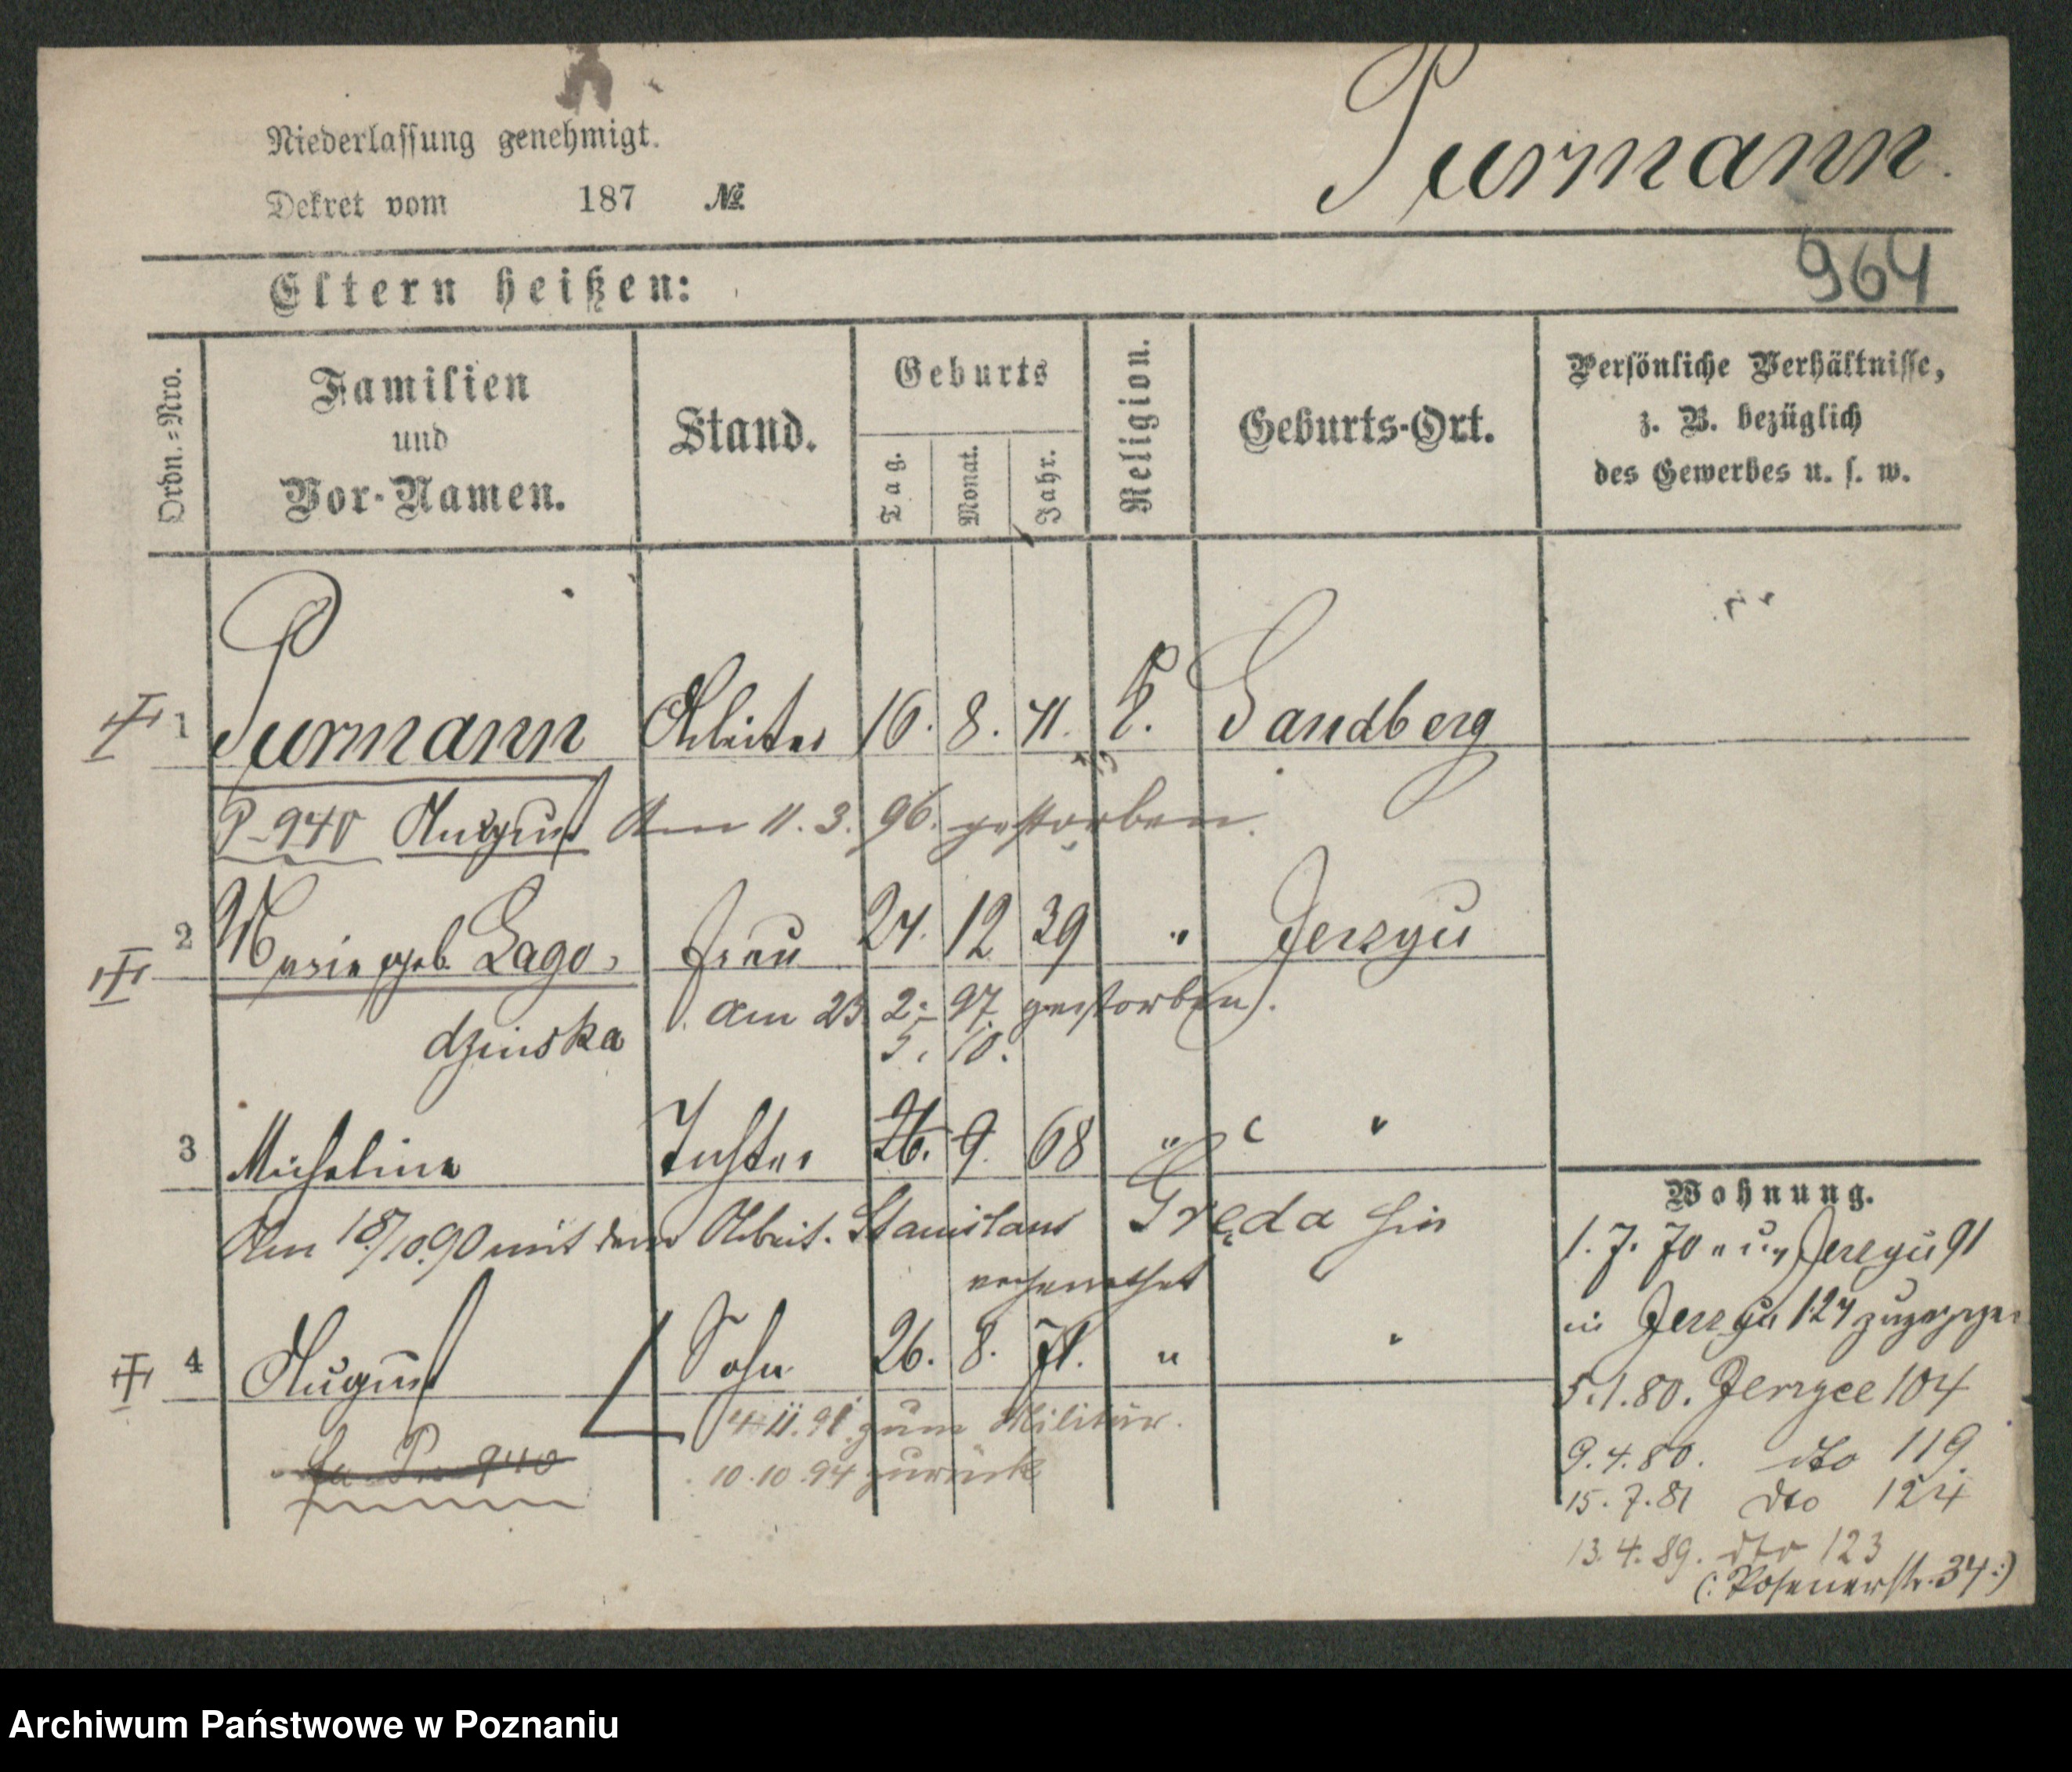 Niederlassung genehmigt.
Dekret vom 187 №
Purmann.
964
Eltern heißen:
Ordn.=Nro.
Familien
und
Vor-Namen.
Stand.
Geburts
Tag.
Monat.
Jahr.
Religion.
Geburts-Ort.
Persönliche Verhältnisse,
z. B. bezüglich
des Gewerbes u. s. w.
1 Purmann Arbeiter 16. 8. 41. k. Sandberg
P-940 August Am 11. 3. 96. gestorben.
2 Marie geb. Lago- Frau 24. 12 39 " Jerzyce
am 23. 2. 97. gestorben.
dzinska
5. 10.
3 Micheline Tochter 26. 9. 68 " "
Am 18/10.90 mit dem Arbeit. Stanislaus Gręda hier
verheirathet
4 August Sohn 26. 8. 71. " "
4.11.91. zum Militär.
P 940
10.10.94 zurück
Wohnung.
1. 7. 70 Jerzyce 91
in Jerzyce 124 zugezogen
5.1.80. Jerzyce 104
9.4.80. dto 119
15.7.81 dto 124
13.4.89. dto 123
(: Posenerstr. 34 :)
Archiwum Państwowe w Poznaniu